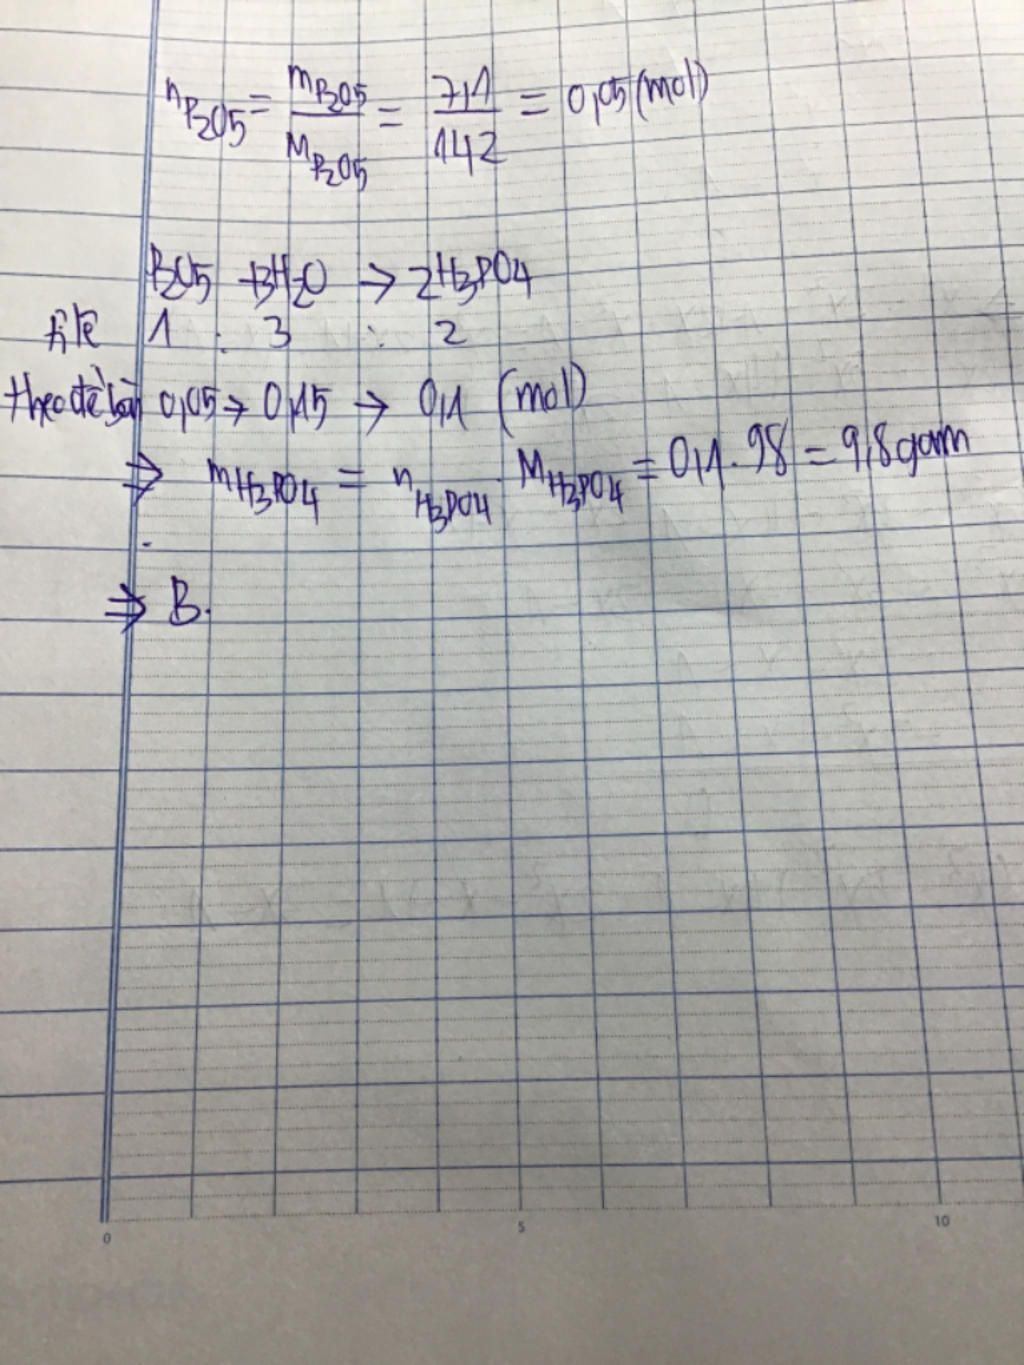 nP2O5 = mP2O5 / MP2O5 = 7,1 / 142 = 0,05 (mol)
P2O5 + 3H2O → 2H3PO4
tỉ lệ 1 : 3 : 2
theo đề bài 0,05 → 0,15 → 0,1 (mol)
⇒ mH3PO4 = nH3PO4 . MH3PO4 = 0,1 . 98 = 9,8 gam
⇒ B.
0 5 10